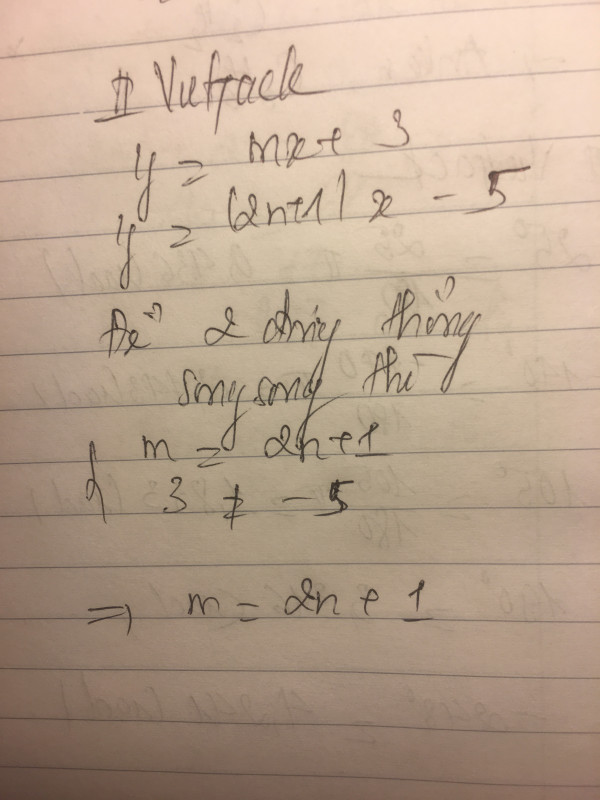 II Vutrack
y = mx + 3
y = (2n+1) x - 5
Để 2 đường thẳng
song song thì
{ m = 2n + 1
3 ≠ -5
=> m = 2n + 1